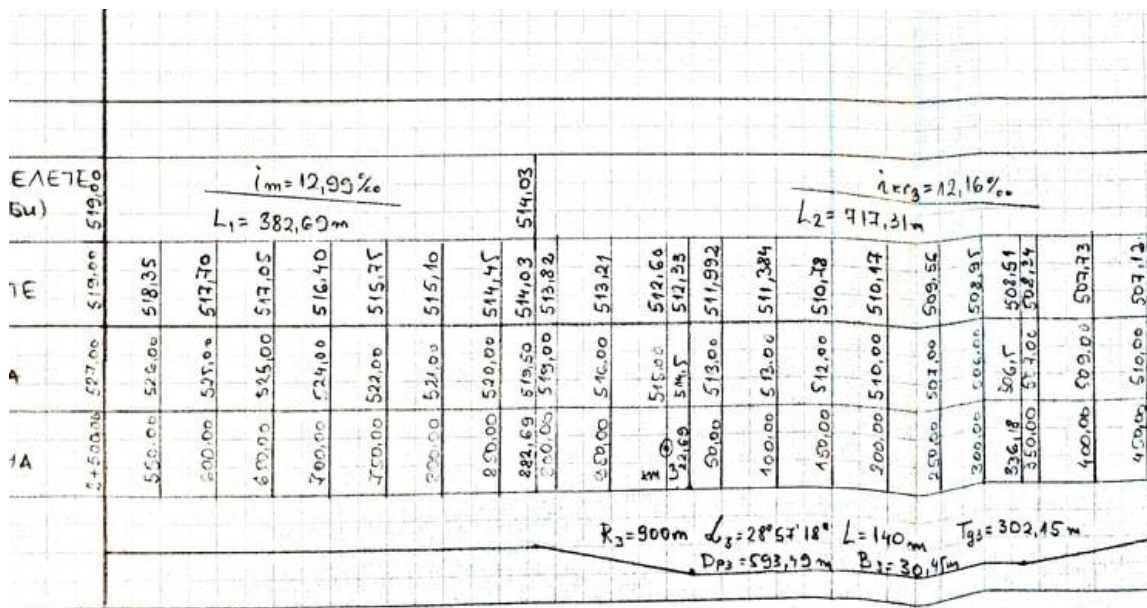 ЕЛЕТЕ
БИ)
519,00
im=12,99‰
L₁=382,69m
514,03
iкr₃=12,16‰
L₂=717,31m
ТЕ 519,00 518,35 517,70 517,05 516,40 515,75 515,10 514,45 514,03 513,82 513,21 512,60 512,33 511,992 511,384 510,78 510,17 509,56 508,95 508,51 508,34 507,73 507,12
А 527,00 526,00 525,00 525,00 524,00 522,00 521,00 520,00 519,50 519,00 516,00 515,00 514,5 513,00 513,00 512,00 510,00 507,00 506,00 506,5 507,00 509,00 510,00
НА 550,00 600,00 650,00 700,00 750,00 800,00 850,00 882,69 900,00 950,00 km 22,69 50,00 100,00 150,00 200,00 250,00 300,00 350,00 400,00 450,00
R₃=900m α₃=28°57'18" L=140m Tg₃=302,15m
Dp₃=593,49m B₃=30,45m